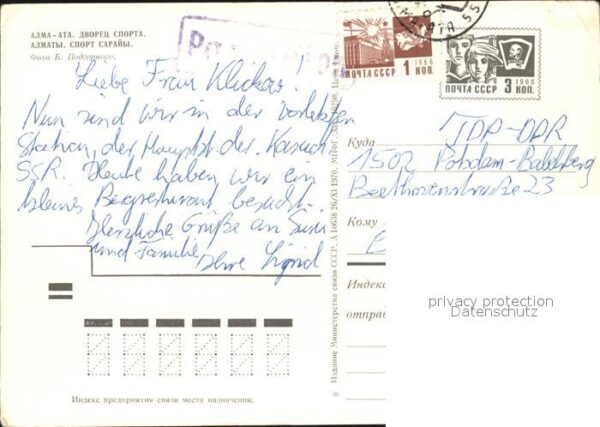 АЛМА-АТА. ДВОРЕЦ СПОРТА.
АЛМАТЫ. СПОРТ САРАЙЫ.
Фото Б. Подгорного.
Liebe Frau
Nun sind wir in der vorletzten
Station, der Hauptst. der Kasach.
SSR. Heute haben wir ein
kleines Bergrestaurant besucht.
Herzliche Grüße an Susi
und Familie
Ihre Sigrid
ПОЧТА СССР 1 КОП.
1966
ПОЧТА СССР 3 КОП.
1966
Куда
DDR
1502 Potsdam-Babelsberg
Beethovenstraße 23
Кому
Индекс
отправ
Издание Министерства связи СССР. А 10638 26/XI 1970.
Индекс предприятия связи места назначения.
privacy protection
Datenschutz